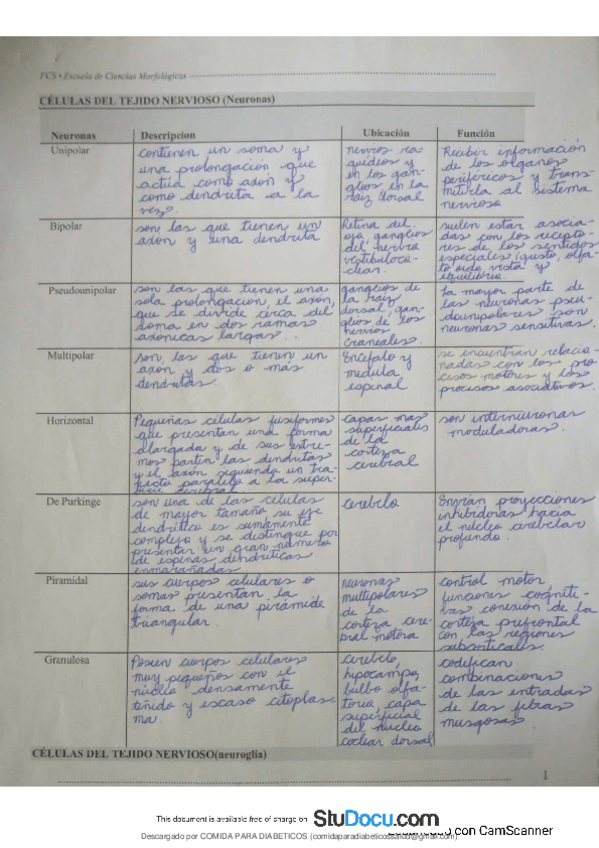 FCS • Escuela de Ciencias Morfológicas
CÉLULAS DEL TEJIDO NERVIOSO (Neuronas)
Neuronas
Descripcion
Ubicación
Función
Unipolar
contienen un soma y
una prolongación que
actúa como axón y
como dendrita a la
vez.
nervios ra-
quídeos y
en los gan-
glios en la
raíz dorsal
Recibir información
de los órganos
periféricos y trans-
mitirla al sistema
nervioso
Bipolar
son las que tienen un
axon y una dendrita
Retina del
ojo, ganglios
del nervio
vestibuloco-
clear.
suelen estar asocia-
das con los recepto-
res de los sentidos
especiales (gusto, olfa-
to oído vista y
equilibrio.
Pseudounipolar
son las que tienen una
sola prolongación, el axón,
que se divide cerca del
soma en dos ramas
axónicas largas.
ganglios de
la raíz
dorsal, gan-
glios de los
nervios
craneales.
La mayor parte de
las neuronas pseu-
dounipolares son
neuronas sensitivas.
Multipolar
son, las que tienen un
axon y dos o más
dendritas.
Encéfalo y
medula
espinal
se encuentran relacio-
nadas con los pro-
cesos motores y los
procesos asociativos.
Horizontal
Pequeñas células fusiformes
que presentan una forma
alargada y de sus extre-
mos parten las dendritas
y el axón siguiendo un tra-
yecto paralelo a la super-
ficie cerebral
capas mas
superficiales
de la
corteza
cerebral
son interneuronas
moduladoras.
De Purkinge
son una de las células
de mayor tamaño su eje
dendrítico es sumamente
complejo y se distingue por
presentar un gran número
de espinas dendríticas
enmarañadas.
cerebelo
Envían proyecciones
inhibidoras hacia
el núcleo cerebelar
profundo.
Piramidal
sus cuerpos celulares o
somas presentan la
forma de una pirámide
triangular.
neuronas
multipolares
de la
corteza cere-
bral motora
control motor,
funciones cogniti-
vas conexión de la
corteza prefrontal
con las regiones
subcorticales.
Granulosa
Poseen cuerpos celulares
muy pequeños con el
núcleo densamente
teñido y escaso citoplas-
ma.
cerebelo,
hipocampo,
bulbo olfa-
torio, capa
superficial
del núcleo
coclear dorsal
codifican
combinaciones
de las entradas
de las fibras
musgosas
CÉLULAS DEL TEJIDO NERVIOSO(neuroglia)
1
This document is available free of charge on StuDocu.com
con CamScanner
Descargado por COMIDA PARA DIABETICOS